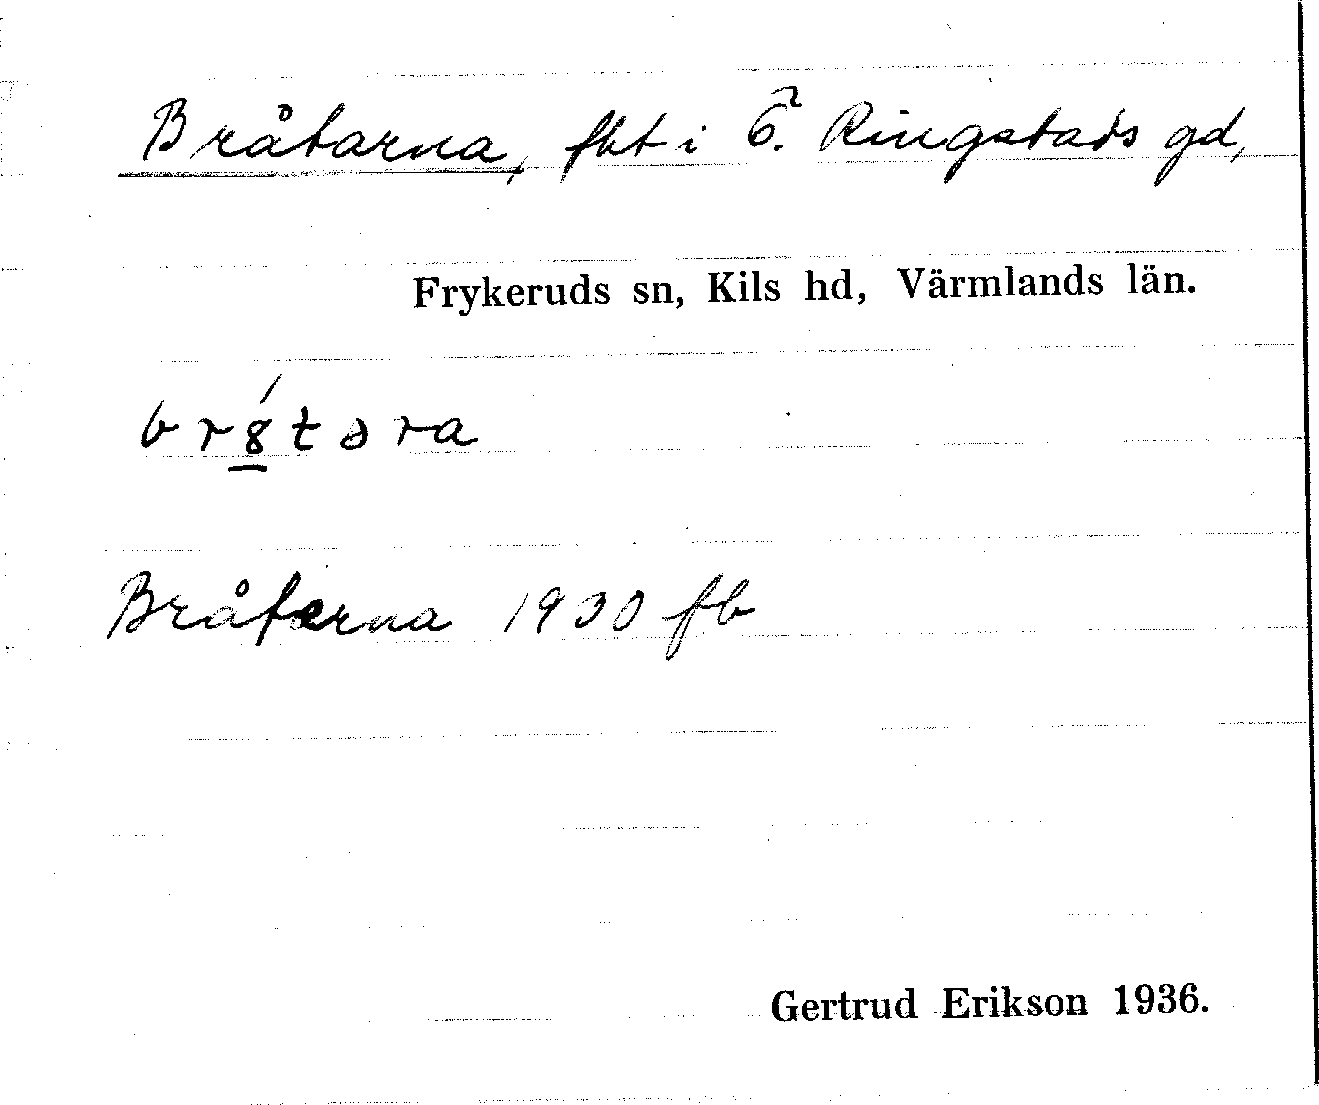 Bråtarna, fht i 6² Ringstads gd,
Frykeruds sn, Kils hd, Värmlands län.
br8́təra
Bråterna 1930 fb
Gertrud Erikson 1936.